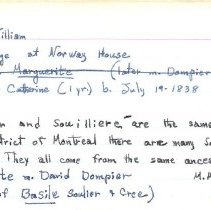 illiam
ge at Norway House
Marguerite (later m. Dompier
Catherine (1 yr) b. July 19-1838
n and Souilliere, are the same
trict of Montreal there are many So
They all come from the same ances
te m. David Dompier M.
of Basile Soulier & Cree)